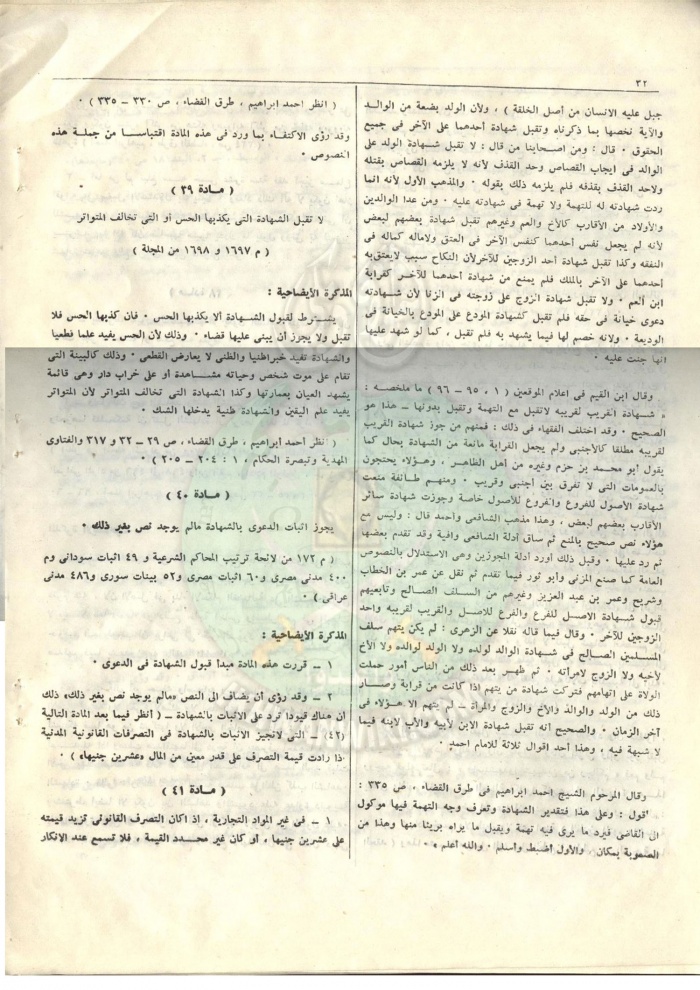 ٣٢
جبل عليه الانسان من أصل الخلقة ) ، ولأن الولد بضعة من الوالد
والآية نخصها بما ذكرناه وتقبل شهادة أحدهما على الآخر فى جميع
الحقوق ٠ قال : ومن اصحابنا من قال : لا تقبل شهادة الولد على
الوالد فى ايجاب القصاص وحد القذف لأنه لا يلزمه القصاص بقتله
ولاحد القذف بقذفه فلم يلزمه ذلك بقوله ٠ والمذهب الأول لأنه انما
ردت شهادته له للتهمة ولا تهمة فى شهادته عليه ٠ ومن عدا الوالدين
والأولاد من الأقارب كالأخ والعم وغيرهم تقبل شهادة بعضهم لبعض
لأنه لم يجعل نفس أحدهما كنفس الآخر فى العتق ولاماله كماله فى
النفقه وكذا تقبل شهادة أحد الزوجين للآخرلأن النكاح سبب لايعتق به
أحدهما على الآخر بالملك فلم يمنع من شهادة أحدهما للآخر كقرابة
ابن العم ٠ ولا تقبل شهادة الزوج على زوجته فى الزنا لأن شهادته
دعوى خيانة فى حقه فلم تقبل كشهادة المودع على المودع بالخيانة فى
الوديعة ٠ ولانه خصم لها فيما يشهد به فلم تقبل ، كما لو شهد عليها
انها جنت عليه ٠
وقال ابن القيم فى اعلام الموقعين ( ١ ، ٩٥ – ٩٦ ) ما ملخصه :
« شهادة القريب لقريبه لاتقبل مع التهمة وتقبل بدونها – هذا هو
الصحيح ٠ وقد اختلف الفقهاء فى ذلك : فمنهم من جوز شهادة القريب
لقريبه مطلقا كالأجنبى ولم يجعل القرابة مانعة من الشهادة بحال كما
يقول أبو محمد بن حزم وغيره من أهل الظاهر ، وهؤلاء يحتجون
بالعمومات التى لا تفرق بين أجنبى وقريب ٠ ومنهم طائفة منعت
شهادة الأصول للفروع والفروع للأصول خاصة وجوزت شهادة سائر
الأقارب بعضهم لبعض ، وهذا مذهب الشافعى وأحمد قال : وليس مع
هؤلاء نص صحيح بالمنع ثم ساق أدلة الشافعى وافية وقد تقدم بعضها
ثم رد عليها ٠ وقبل ذلك أورد أدلة المجوزين وهى الاستدلال بالنصوص
العامة كما صنع المزنى وأبو ثور فيما تقدم ثم نقل عن عمر بن الخطاب
وشريح وعمر بن عبد العزيز وغيرهم من السلف الصالح وتابعيهم
قبول شهادة الاصل للفرع والفرع للاصل والقريب لقريبه واحد
الزوجين للآخر ٠ وقال فيما قاله نقلا عن الزهرى : لم يكن يتهم سلف
المسلمين الصالح فى شهادة الوالد لولده ولا الولد لوالده ولا الأخ
لأخيه ولا الزوج لامرأته ٠ ثم ظهر بعد ذلك من الناس أمور حملت
الولاة على اتهامهم فتركت شهادة من يتهم اذا كانت من قرابة وصار
ذلك من الولد والوالد والأخ والزوج والمرأة – لم يتهم الا هؤلاء فى
آخر الزمان ٠ والصحيح أنه تقبل شهادة الابن لأبيه والأب لابنه فيما
لا شبهة فيه ، وهذا أحد اقوال ثلاثة للامام احمد ٠
وقال المرحوم الشيخ احمد ابراهيم فى طرق القضاء ، ص ٣٣٥ :
أقول : وعلى هذا فتقدير الشهادة وتعرف وجه التهمة فيها موكول
الى القاضى فيرد ما يرى فيه تهمة ويقبل ما يراه بريئا منها وهذا من
الصعوبة بمكان ٠ والأول أضبط وأسلم ٠ والله أعلم » ٠
( انظر احمد ابراهيم ، طرق القضاء ، ص ٣٣٠ – ٣٣٥ ) ٠
وقد رؤى الاكتفاء بما ورد فى هذه المادة اقتباسا من جملة هذه
النصوص ٠
( مادة ٣٩ )
لا تقبل الشهادة التى يكذبها الحس أو التى تخالف المتواتر
( م ١٦٩٧ و ١٦٩٨ من المجلة )
المذكرة الأيضاحية :
يشترط لقبول الشهادة ألا يكذبها الحس ٠ فان كذبها الحس فلا
تقبل ولا يجوز أن يبنى عليها قضاء ٠ وذلك لأن الحس يفيد علما قطعيا
والشهادة تفيد خبراظنيا والظنى لا يعارض القطعى ٠ وذلك كالبينة التى
تقام على موت شخص وحياته مشاهدة أو على خراب دار وهى قائمة
يشهد العيان بعمارتها وكذا الشهادة التى تخالف المتواتر لأن المتواتر
يفيد علم اليقين والشهادة ظنية يدخلها الشك ٠
( انظر أحمد ابراهيم ، طرق القضاء ، ص ٢٩ – ٣٢ و ٣١٧ والفتاوى
المهدية وتبصرة الحكام ، ١ : ٢٠٤ – ٢٠٥ ) ٠
( مادة ٤٠ )
يجوز اثبات الدعوى بالشهادة مالم يوجد نص بغير ذلك ٠
( م ١٧٢ من لائحة ترتيب المحاكم الشرعية و ٤٩ اثبات سودانى وم
٤٠٠ مدنى مصرى و ٦٠ اثبات مصرى و٥٢ بينات سورى و٤٨٦ مدنى
عراقى ) ٠
المذكرة الأيضاحية :
١ – قررت هذه المادة مبدأ قبول الشهادة فى الدعوى ٠
٢ – وقد رؤى أن يضاف الى النص «مالم يوجد نص بغير ذلك» ذلك
ان هناك قيودا ترد على الاثبات بالشهادة – ( أنظر فيما بعد المادة التالية
(٤٢) – التى لاتجيز الاثبات بالشهادة فى التصرفات القانونية المدنية
ذا زادت قيمة التصرف على قدر معين من المال «عشرين جنيها» ٠ )
( مادة ٤١ )
١ – فى غير المواد التجارية ، اذ اكان التصرف القانونى تزيد قيمته
على عشرين جنيها ، أو كان غير محدد القيمة ، فلا تسمع عند الانكار